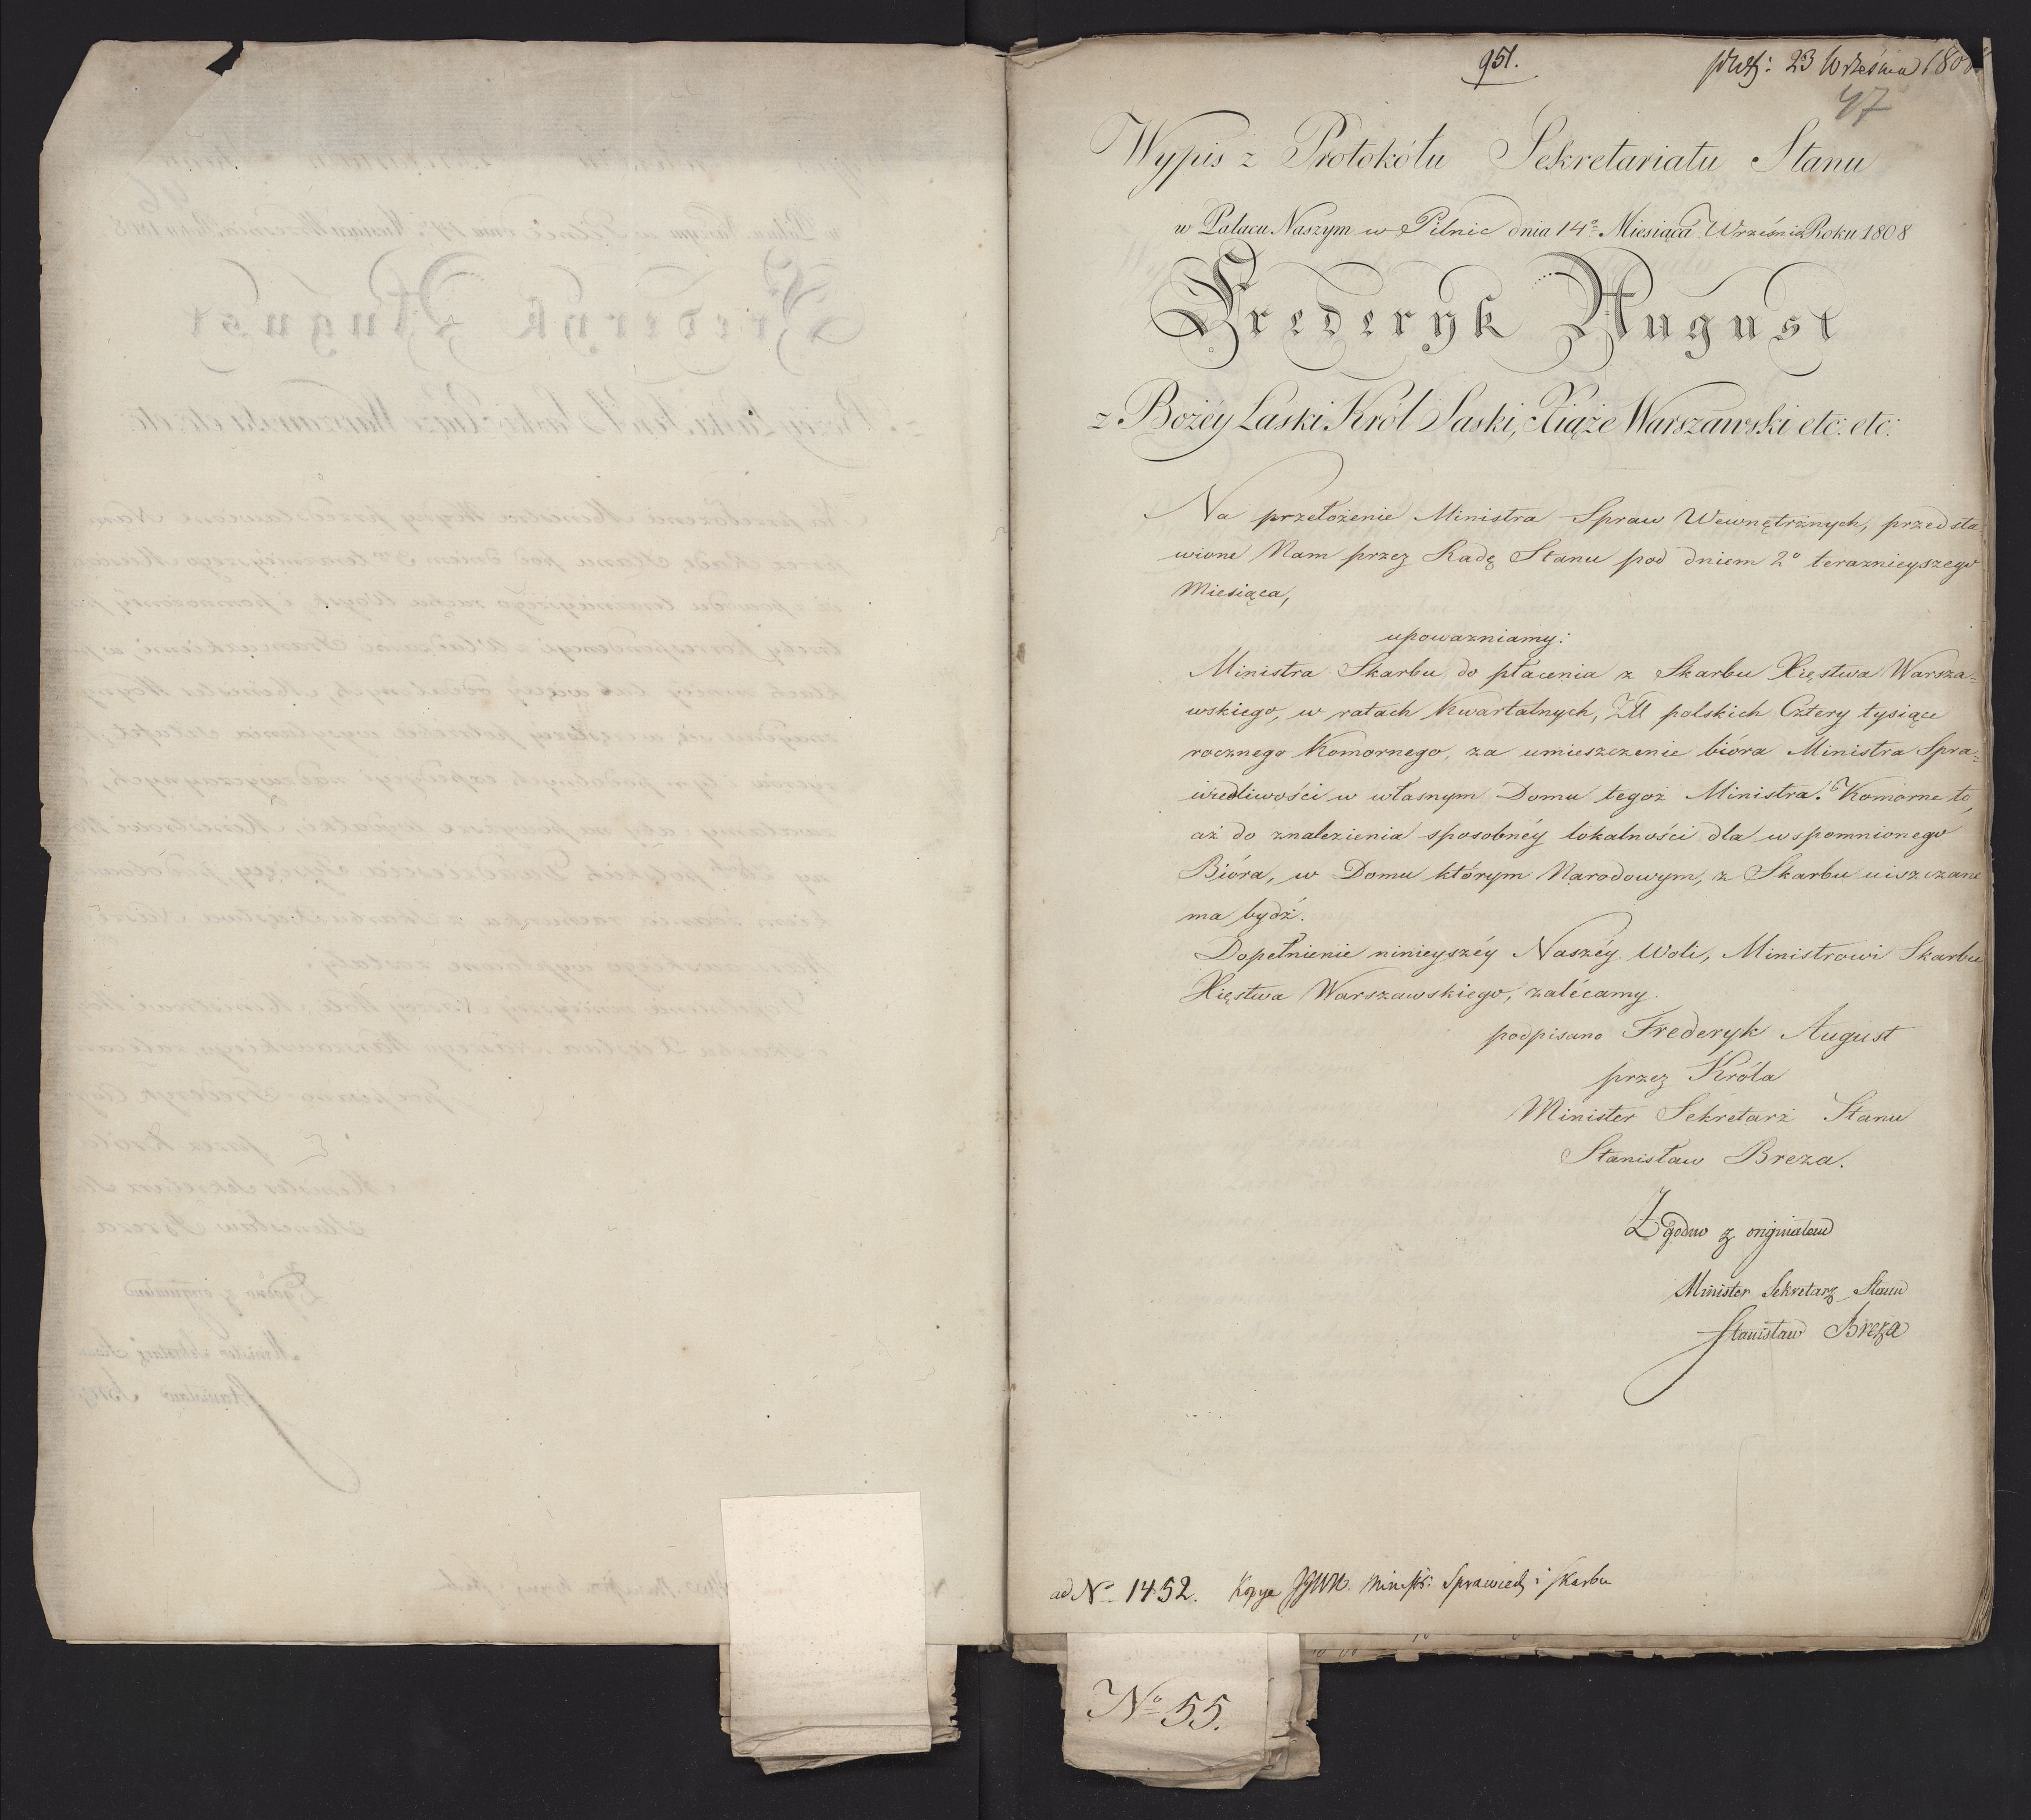 951.
23 Września 180
47
Wypis z Protokółu Sekretariatu Stanu
w Pałacu Naszym w Pilnic dnia 14º Miesiąca Września Roku 1808
Frederyk August
z Bożey Łaski Król Saski, Xiąże Warszawski etc: etc:
Na przełożenie Ministra Spraw Wewnętrznych, przedsta
wione Nam przez Radę Stanu pod dniem 2º teraznieyszego
Miesiąca,
upoważniamy:
Ministra Skarbu do płacenia z Skarbu Xięstwa Warsza=
wskiego, w ratach Kwartalnych, Zł polskich Cztery tysiące
rocznego Komornego, za umieszczenie bióra Ministra Spra=
wiedliwości w własnym Domu tegoż Ministra. Komorne to,
aż do znalezienia sposobnéy lokalności dla wspomnionego
Bióra, w Domu którym Narodowym, z Skarbu uiszczane
ma bydź.
Dopełnienie ninieyszéy Naszéy Woli, Ministrowi Skarbu
Xięstwa Warszawskiego, zalécamy.
podpisano Frederyk August
przez Króla
Minister Sekretarz Stanu
Stanisław Breza.
Zgodno z originałem
Minister Sekretarz Stanu
Stanisław Breza
ad Nº 1452. Kopya JJWW. Ministr: Sprawied i Skarbu
Nº 55.